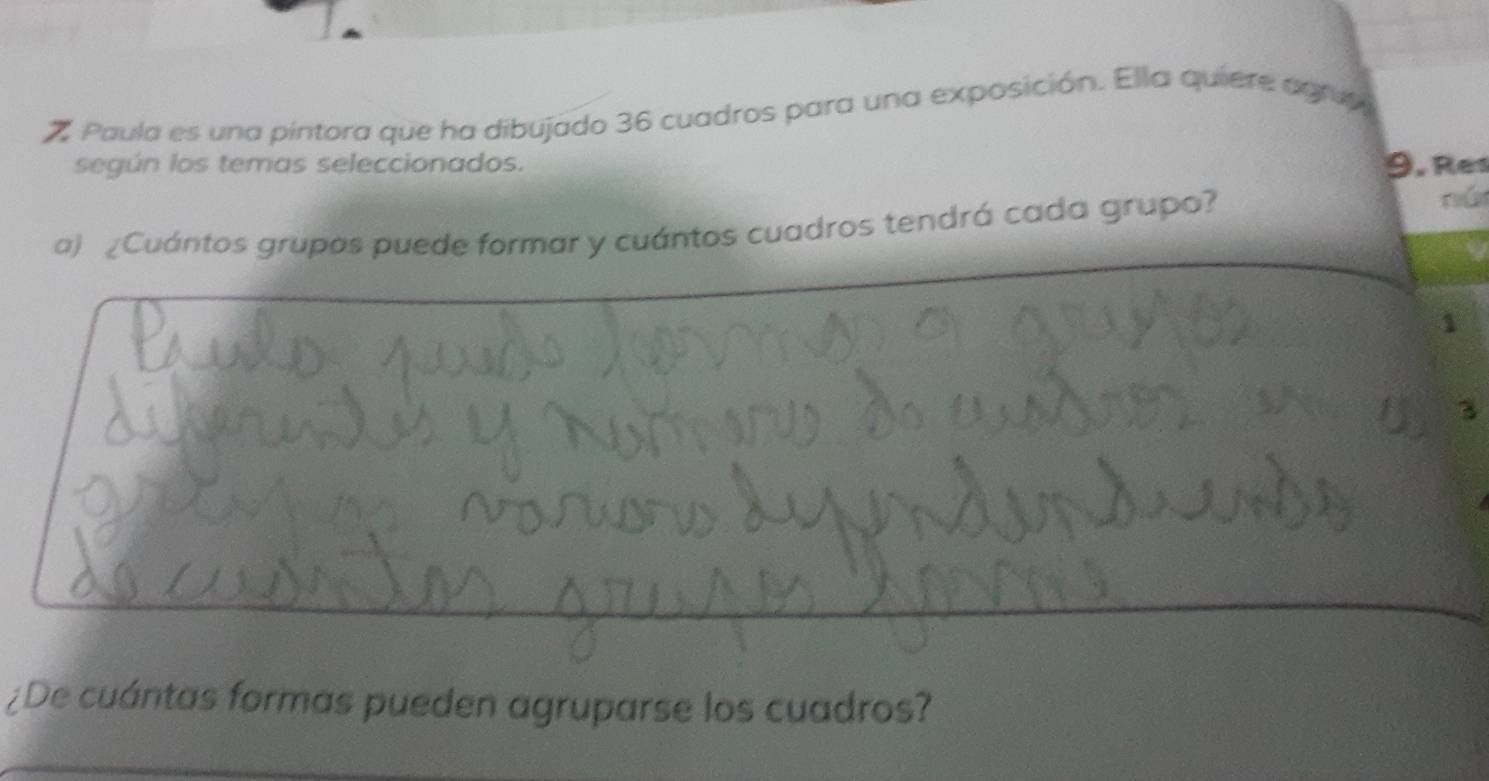 7. Paula es una pintora que ha dibujado 36 cuadros para una exposición. Ella quiere
según los temas seleccionados.
9. Res
núr
a) ¿Cuántos grupos puede formar y cuántos cuadros tendrá cada grupo?
1
Paula puede formar 9 grupos
diferentes y numero de cuadros en
3
grupos dependiendo
de cuantos grupos forme
¿De cuántas formas pueden agruparse los cuadros?